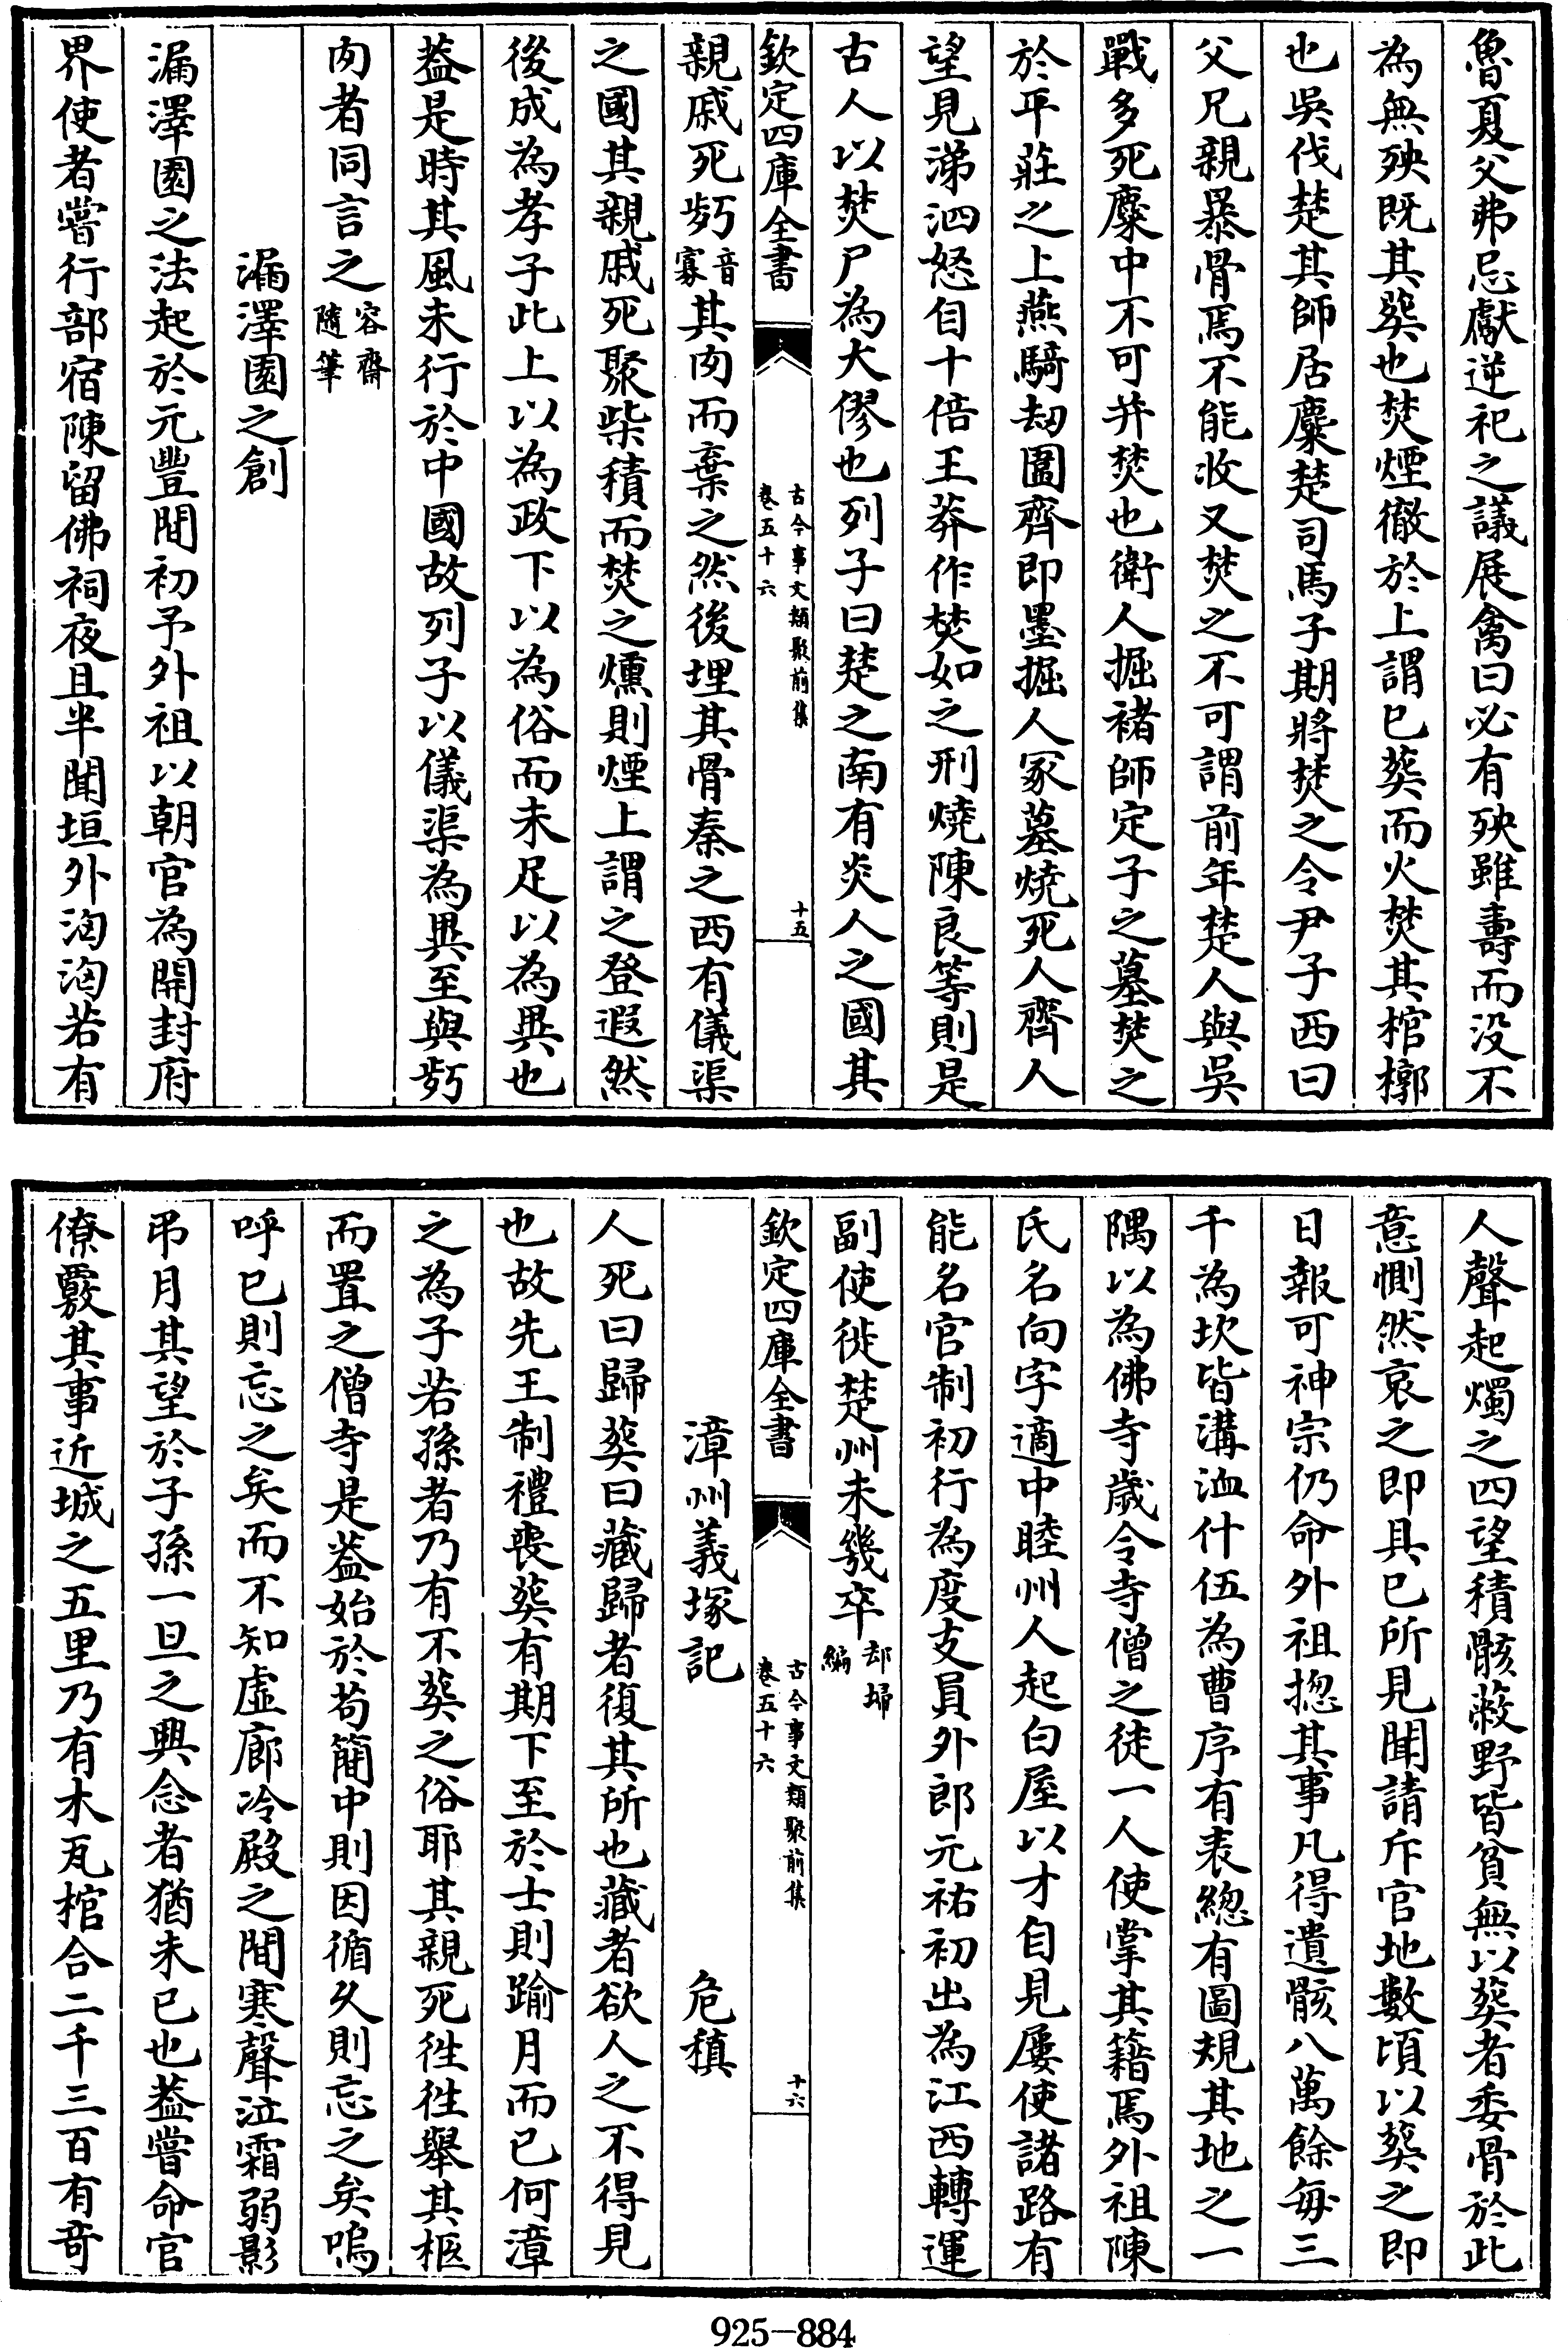 魯夏父弗忌獻逆祀之議展禽曰必有殃雖壽而没不
為無殃既其葬也焚煙徹於上謂已葬而火焚其棺槨
也吳伐楚其師居麋楚司馬子期將焚之令尹子西曰
父兄親暴骨焉不能收又焚之不可謂前年楚人與吳
戰多死麋中不可并焚也衛人掘褚師定子之墓焚之
於平莊之上燕騎劫圍齊即墨掘人冢墓燒死人齊人
望見涕泗怒自十倍王莽作焚如之刑燒陳良等則是
古人以焚尸為大僇也列子曰楚之南有炎人之國其
欽定四庫全書
古今事文類聚前集
卷五十六
十五
親戚死㱙音寡其肉而棄之然後埋其骨秦之西有儀渠
之國其親戚死聚柴積而焚之燻則煙上謂之登遐然
後成為孝子此上以為政下以為俗而未足以為異也
蓋是時其風未行於中國故列子以儀渠為異至與㱙
肉者同言之容齋隨筆
漏澤園之創
漏澤園之法起於元豐間初予外祖以朝官為開封府
界使者嘗行部宿陳留佛祠夜且半聞垣外洶洶若有
人聲起燭之四望積骸蔽野皆貧無以葬者委骨於此
意惻然哀之即具已所見聞請斥官地數頃以葬之即
日報可神宗仍命外祖揔其事凡得遺骸八萬餘每三
千為坎皆溝洫什伍為曹序有表總有圖規其地之一
隅以為佛寺歲令寺僧之徒一人使掌其籍焉外祖陳
氏名向字適中睦州人起白屋以才自見屢使諸路有
能名官制初行為度支員外郎元祐初出為江西轉運
副使徙楚州未幾卒却埽編
欽定四庫全書
古今事文類聚前集
卷五十六
十六
漳州義塚記 危稹
人死曰歸葬曰藏歸者復其所也藏者欲人之不得見
也故先王制禮喪葬有期下至於士則踰月而已何漳
之為子若孫者乃有不葬之俗耶其親死徃徃舉其柩
而置之僧寺是蓋始於苟簡中則因循久則忘之矣嗚
呼已則忘之矣而不知虛廊冷殿之間寒聲泣霜弱影
弔月其望於子孫一旦之興念者猶未已也蓋嘗命官
僚覈其事近城之五里乃有木瓦棺合二千三百有奇
925-884